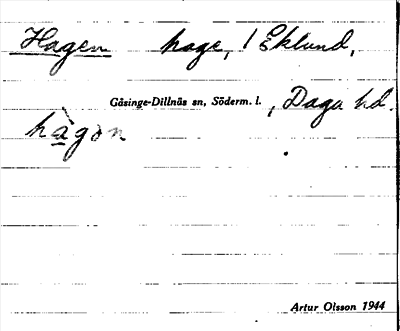 Hagen hage, 1 Eklund,
Gåsinge-Dillnäs sn, Söderm. l., Daga hd.
hàgən
Artur Olsson 1944